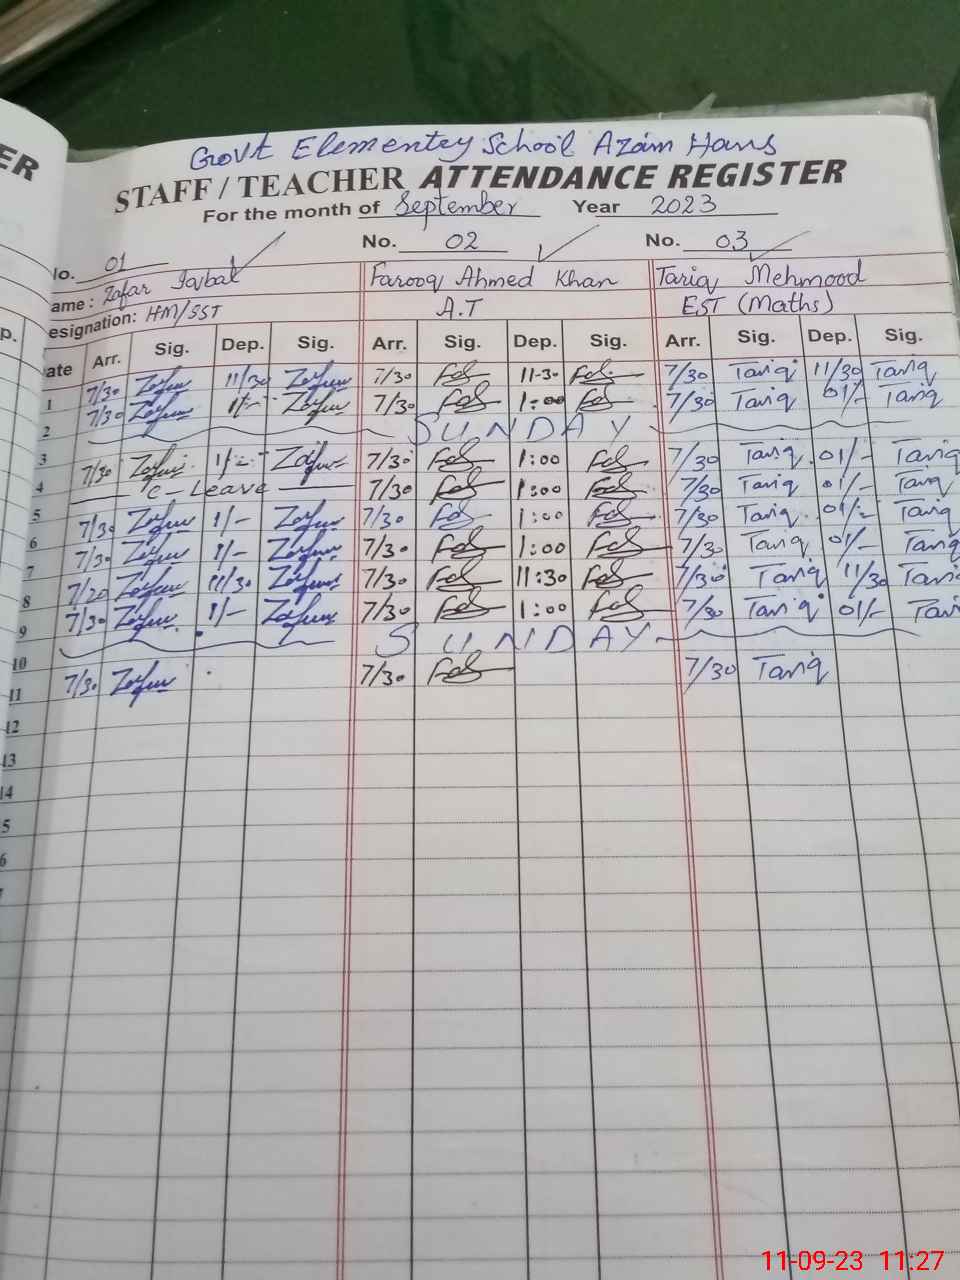 ER
Govt Elementey School Azam Hans
STAFF / TEACHER ATTENDANCE REGISTER
For the month of September Year 2023
No. 01 No. 02 No. 03
ame: Zafar Iqbal Farooq Ahmed Khan Tariq Mehmood
esignation: HM/SST A.T EST (Maths)
p. ate Arr. Sig. Dep. Sig. Arr. Sig. Dep. Sig. Arr. Sig. Dep. Sig.
1 7/30 11/30 7/30 11-30 7/30 Tariq 11/30 Tariq
2 7/30 1/- 7/30 1:00 7/30 Tariq 01/- Tariq
3 SUNDAY
4 7/30 1/- 7/30 1:00 7/30 Tariq 01/- Tariq
5 C-Leave 7/30 1:00 7/30 Tariq 01/- Tariq
6 7/30 1/- 7/30 1:00 7/30 Tariq 01/- Tariq
7 7/30 1/- 7/30 1:00 7/30 Tariq 01/- Tariq
8 7/20 11/30 7/30 11:30 7/30 Tariq 11/30 Tariq
9 7/30 1/- 7/30 1:00 7/30 Tariq 01/- Tari
10 SUNDAY
11 7/30 7/30 7/30 Tariq
12
13
14
5
6
7
11-09-23 11:27